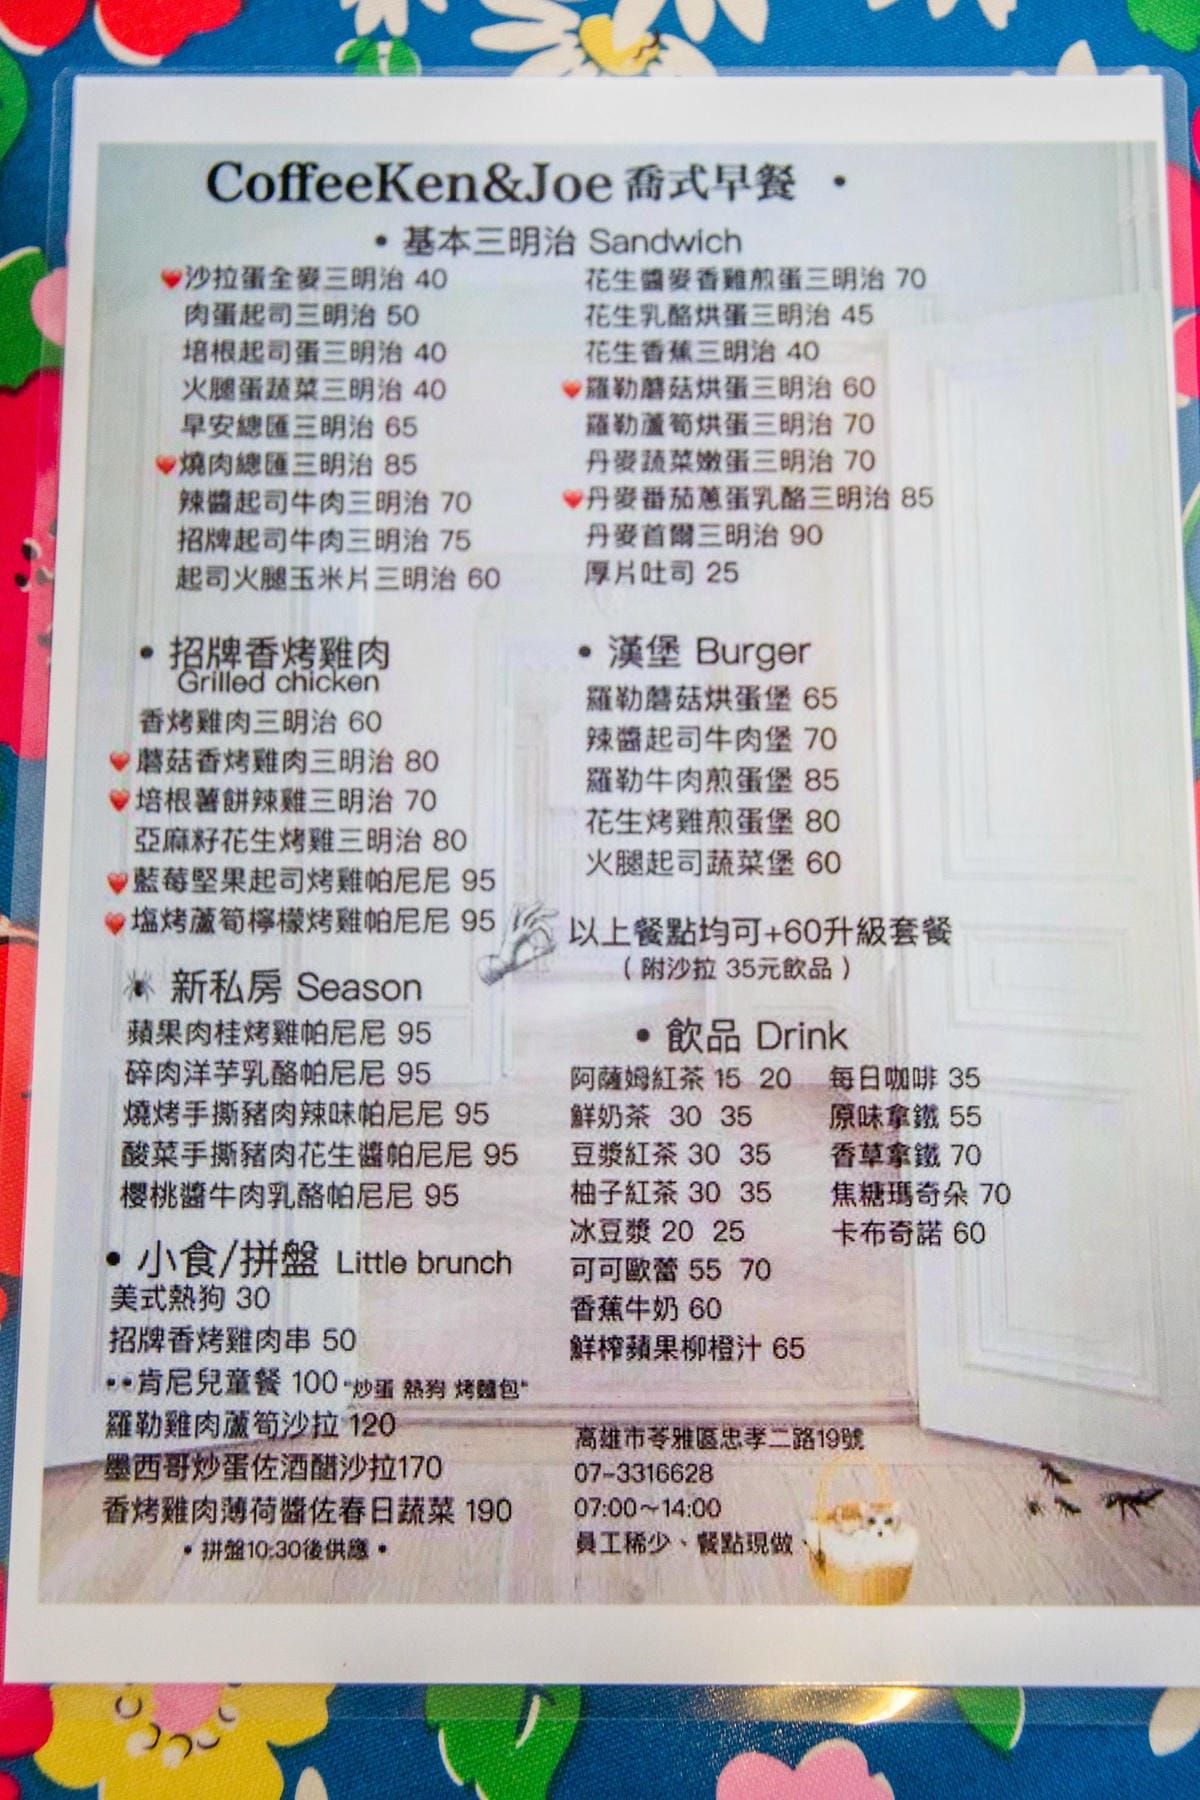 CoffeeKen&Joe 喬式早餐 •
• 基本三明治 Sandwich
沙拉蛋全麥三明治 40
肉蛋起司三明治 50
培根起司蛋三明治 40
火腿蛋蔬菜三明治 40
早安總匯三明治 65
燒肉總匯三明治 85
辣醬起司牛肉三明治 70
招牌起司牛肉三明治 75
起司火腿玉米片三明治 60
花生醬麥香雞煎蛋三明治 70
花生乳酪烘蛋三明治 45
花生香蕉三明治 40
羅勒蘑菇烘蛋三明治 60
羅勒蘆筍烘蛋三明治 70
丹麥蔬菜嫩蛋三明治 70
丹麥番茄蔥蛋乳酪三明治 85
丹麥首爾三明治 90
厚片吐司 25
• 招牌香烤雞肉
Grilled chicken
香烤雞肉三明治 60
蘑菇香烤雞肉三明治 80
培根薯餅辣雞三明治 70
亞麻籽花生烤雞三明治 80
藍莓堅果起司烤雞帕尼尼 95
塩烤蘆筍檸檬烤雞帕尼尼 95
新私房 Season
蘋果肉桂烤雞帕尼尼 95
碎肉洋芋乳酪帕尼尼 95
燒烤手撕豬肉辣味帕尼尼 95
酸菜手撕豬肉花生醬帕尼尼 95
櫻桃醬牛肉乳酪帕尼尼 95
• 小食/拼盤 Little brunch
美式熱狗 30
招牌香烤雞肉串 50
••肯尼兒童餐 100 "炒蛋 熱狗 烤麵包"
羅勒雞肉蘆筍沙拉 120
墨西哥炒蛋佐酒醋沙拉170
香烤雞肉薄荷醬佐春日蔬菜 190
• 拼盤10:30後供應 •
• 漢堡 Burger
羅勒蘑菇烘蛋堡 65
辣醬起司牛肉堡 70
羅勒牛肉煎蛋堡 85
花生烤雞煎蛋堡 80
火腿起司蔬菜堡 60
以上餐點均可+60升級套餐
( 附沙拉 35元飲品 )
• 飲品 Drink
阿薩姆紅茶 15 20
鮮奶茶 30 35
豆漿紅茶 30 35
柚子紅茶 30 35
冰豆漿 20 25
可可歐蕾 55 70
香蕉牛奶 60
鮮榨蘋果柳橙汁 65
每日咖啡 35
原味拿鐵 55
香草拿鐵 70
焦糖瑪奇朵 70
卡布奇諾 60
高雄市苓雅區忠孝二路19號
07-3316628
07:00～14:00
員工稀少、餐點現做、